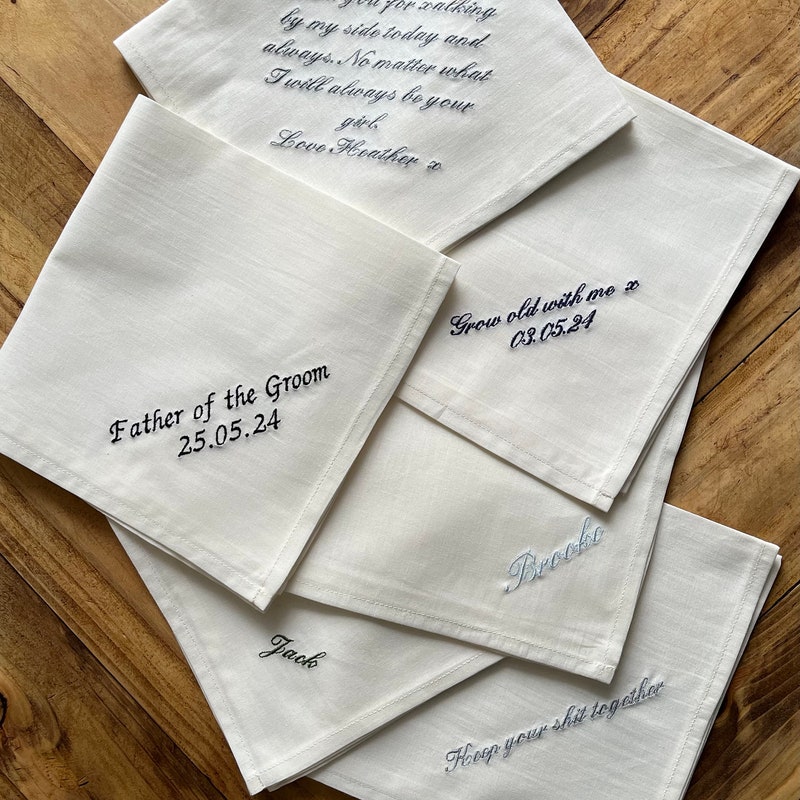 you for walking
by my side today and
always. No matter what
I will always be your
girl.
Love Heather x
Grow old with me x
03.05.24
Father of the Groom
25.05.24
Brooke
Jack
Keep your shit together